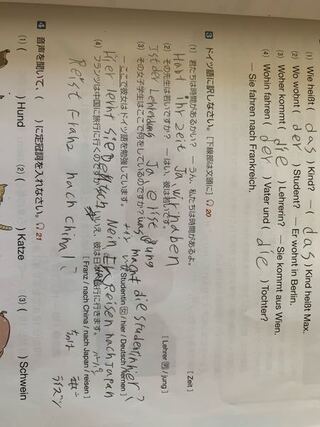 (1) Wie heißt ( das ) Kind? — ( das ) Kind heißt Max.
(2) Wo wohnt ( der ) Student? — Er wohnt in Berlin.
(3) Woher kommt ( die ) Lehrerin? — Sie kommt aus Wien.
(4) Wohin fahren ( der ) Vater und ( die ) Tochter?
— Sie fahren nach Frankreich.
3 ドイツ語に訳しなさい。[下線部は文頭に] 20
(1) 君たちは時間があるかい? — うん、私たちは時間があるよ。 [Zeit]
Habt ihr Zeit Ja wir haben
(2) その先生は若いですか? — はい、彼は若いです。 [Lehrer 男 / jung]
Ist der Lehrer jung Ja er ist jung
(3) その女子学生はここで何をしているのですか?
was macht die studentin hier?
— ここで彼女はドイツ語を勉強しています。 [Studentin 女 / hier / Deutsch / lernen]
Hier lernt sie Deutsch
(4) フランツは中国に旅行に行くのですか? — いいえ、彼は日本に旅行に行きます。
[Franz / nach China / nach Japan / reisen]
Nein er reisen nach Japan
Reist Franz nach china?
4 音声を聞いて、( )に定冠詞を入れなさい。 21
(1) ( ) Hund (2) ( ) Katze (3) ( ) Schwein